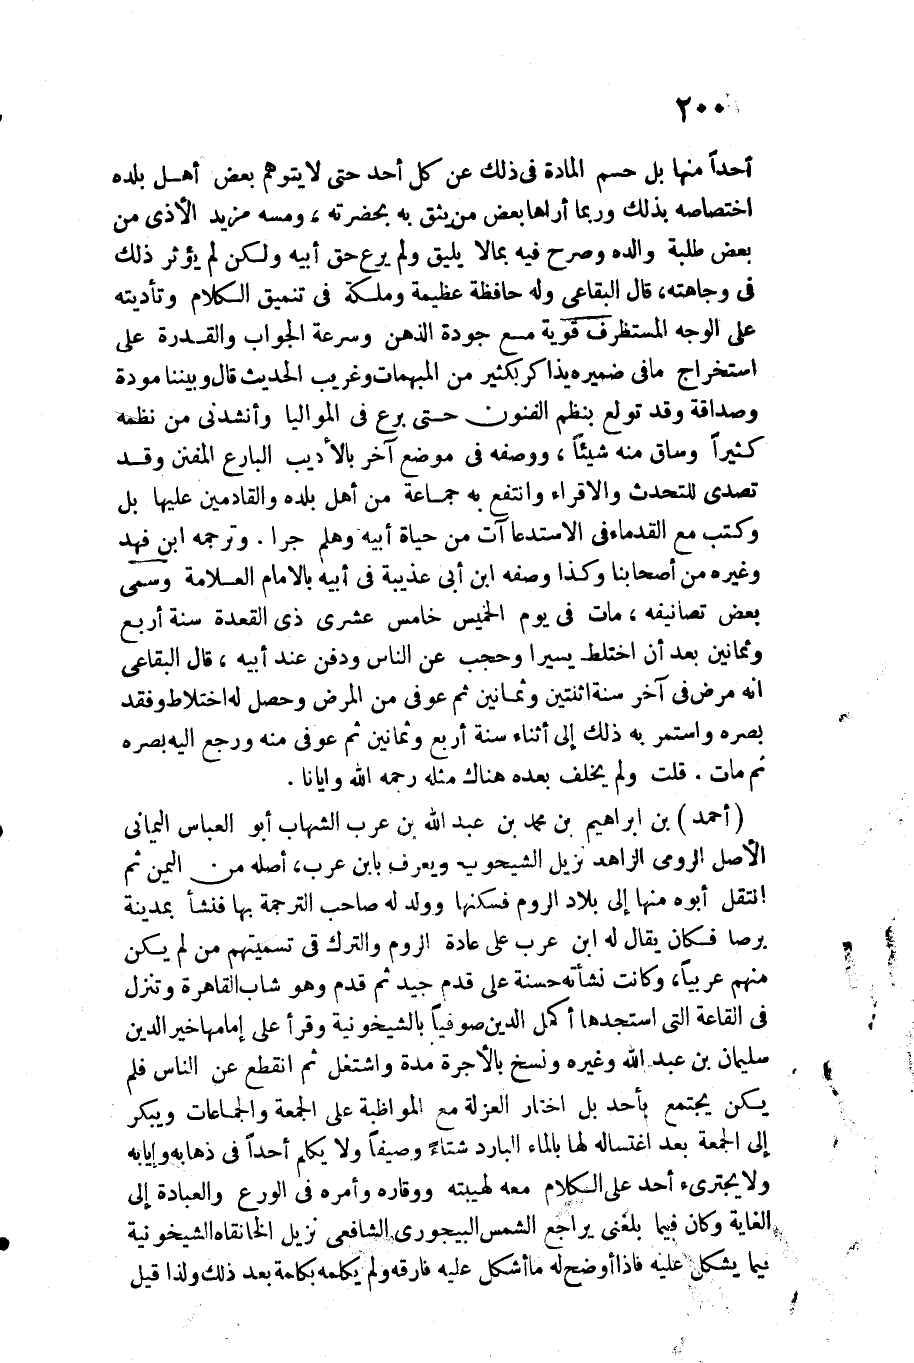 ٢٠٠
أحداً منها بل حسم المادة فى ذلك عن كل أحد حتى لا يتوهم بعض أهـل بلده
اختصاصه بذلك وربما أراها بعض من يثق به بحضرته ، ومسه مزيد الأذى من
بعض طلبة والده وصرح فيه بمالا يليق ولم يرع حق أبيه ولكن لم يؤثر ذلك
فى وجاهته، قال البقاعى وله حافظة عظيمة وملكة فى تنميق الكلام وتأديته
على الوجه المستظرف قوية مع جودة الذهن وسرعة الجواب والقدرة على
استخراج مافى ضميره يذاكر بكثير من المبهمات وغريب الحديث قال وبيننا مودة
وصداقة وقد تولع بنظم الفنون حتى برع فى المواليا وأنشدنى من نظمه
كثيراً وساق منه شيئاً ، ووصفه فى موضع آخر بالأديب البارع المفنن وقد
تصدى للتحدث والاقراء وانتفع به جماعة من أهل بلده والقادمين عليها بل
وكتب مع القدماء فى الاستدعاآت من حياة أبيه وهلم جرا . وترجمه ابن فهد
وغيره من أصحابنا وكذا وصفه ابن أبى عذيبة فى أبيه بالامام العلامة وسمى
بعض تصانيفه ، مات فى يوم الخميس خامس عشرى ذى القعدة سنة أربع
وثمانين بعد أن اختلط يسيرا وحجب عن الناس ودفن عند أبيه ، قال البقاعى
انه مرض فى آخر سنة اثنتين وثمـانين ثم عوفى من المرض وحصل له اختلاط وفقد
بصره واستمر به ذلك إلى أثناء سنة أربع وثمانين ثم عوفى منه ورجع اليه بصره
ثم مات . قلت ولم يخلف بعده هناك مثله رحمه الله وايانا .
(أحمد) بن ابراهيم بن محمد بن عبد الله بن عرب الشهاب أبو العباس اليمانى
الأصل الرومى الزاهد نزيل الشيخونية ويعرف بابن عرب، أصله من اليمن ثم
انتقل أبوه منها إلى بلاد الروم فسكنها وولد له صاحب الترجمة بها فنشأ بمدينة
برصا فكان يقال له ابن عرب على عادة الروم والترك فى تسميتهم من لم يكن
منهم عربياً، وكانت نشأته حسنة على قدم جيد ثم قدم وهو شاب القاهرة وتنزل
فى القاعة التى استجدها أكمل الدين صوفياً بالشيخونية وقرأ على إمامها خير الدين
سليمان بن عبد الله وغيره ونسخ بالأجرة مدة واشتغل ثم انقطع عن الناس فلم
يكن يجتمع بأحد بل اختار العزلة مع المواظبة على الجمعة والجماعات ويبكر
إلى الجمعة بعد اغتساله لها بالماء البارد شتاءً وصيفاً ولا يكلم أحداً فى ذهابه وإيابه
ولا يجترىء أحد على الكلام معه لهيبته ووقاره وأمره فى الورع والعبادة إلى
الغاية وكان فيما بلغنى يراجع الشمس البيجورى الشافعى نزيل الخانقاه الشيخونية
فيما يشكل عليه فاذا أوضح له ما أشكل عليه فارقه ولم يكلمه بكلمة بعد ذلك ولذا قيل